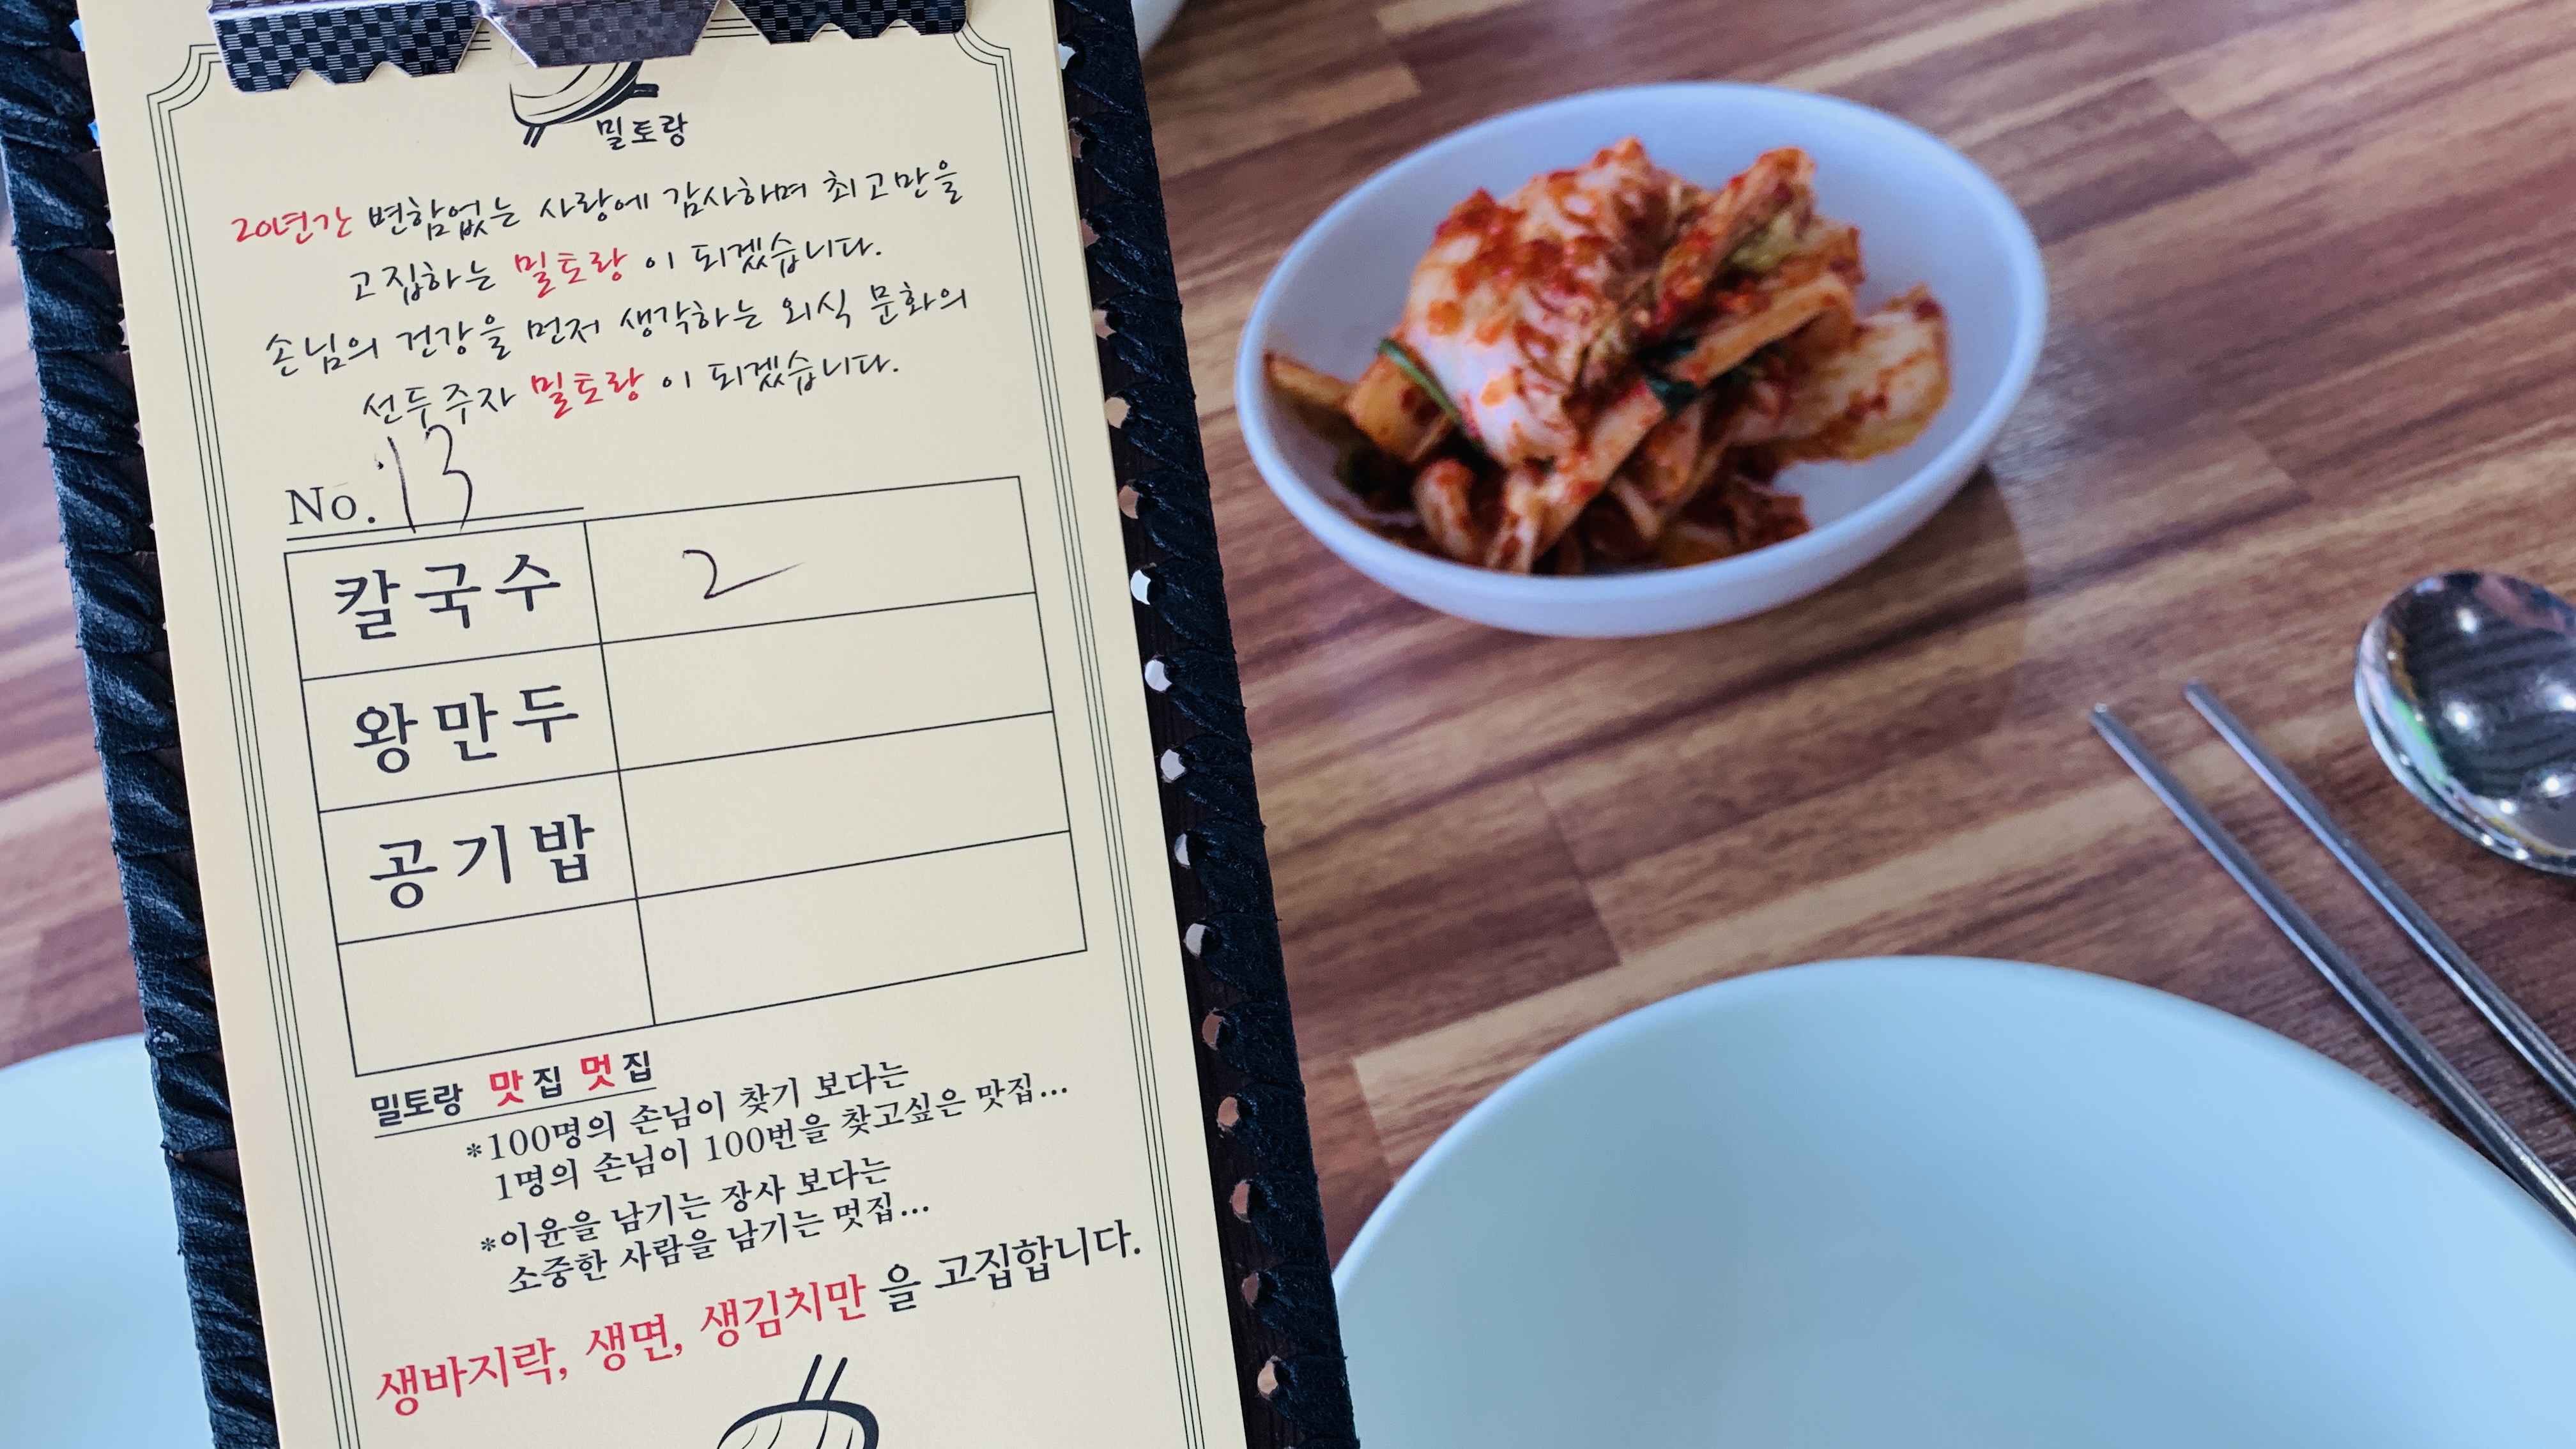 밀토랑
20년간 변함없는 사랑에 감사하며 최고만을
고집하는 밀토랑이 되겠습니다.
손님의 건강을 먼저 생각하는 외식 문화의
선두주자 밀토랑이 되겠습니다.
No. 13
칼국수 2
왕만두
공기밥
밀토랑 맛집 멋집
*100명의 손님이 찾기 보다는
1명의 손님이 100번을 찾고싶은 맛집...
*이윤을 남기는 장사 보다는
소중한 사람을 남기는 멋집...
생바지락, 생면, 생김치만을 고집합니다.